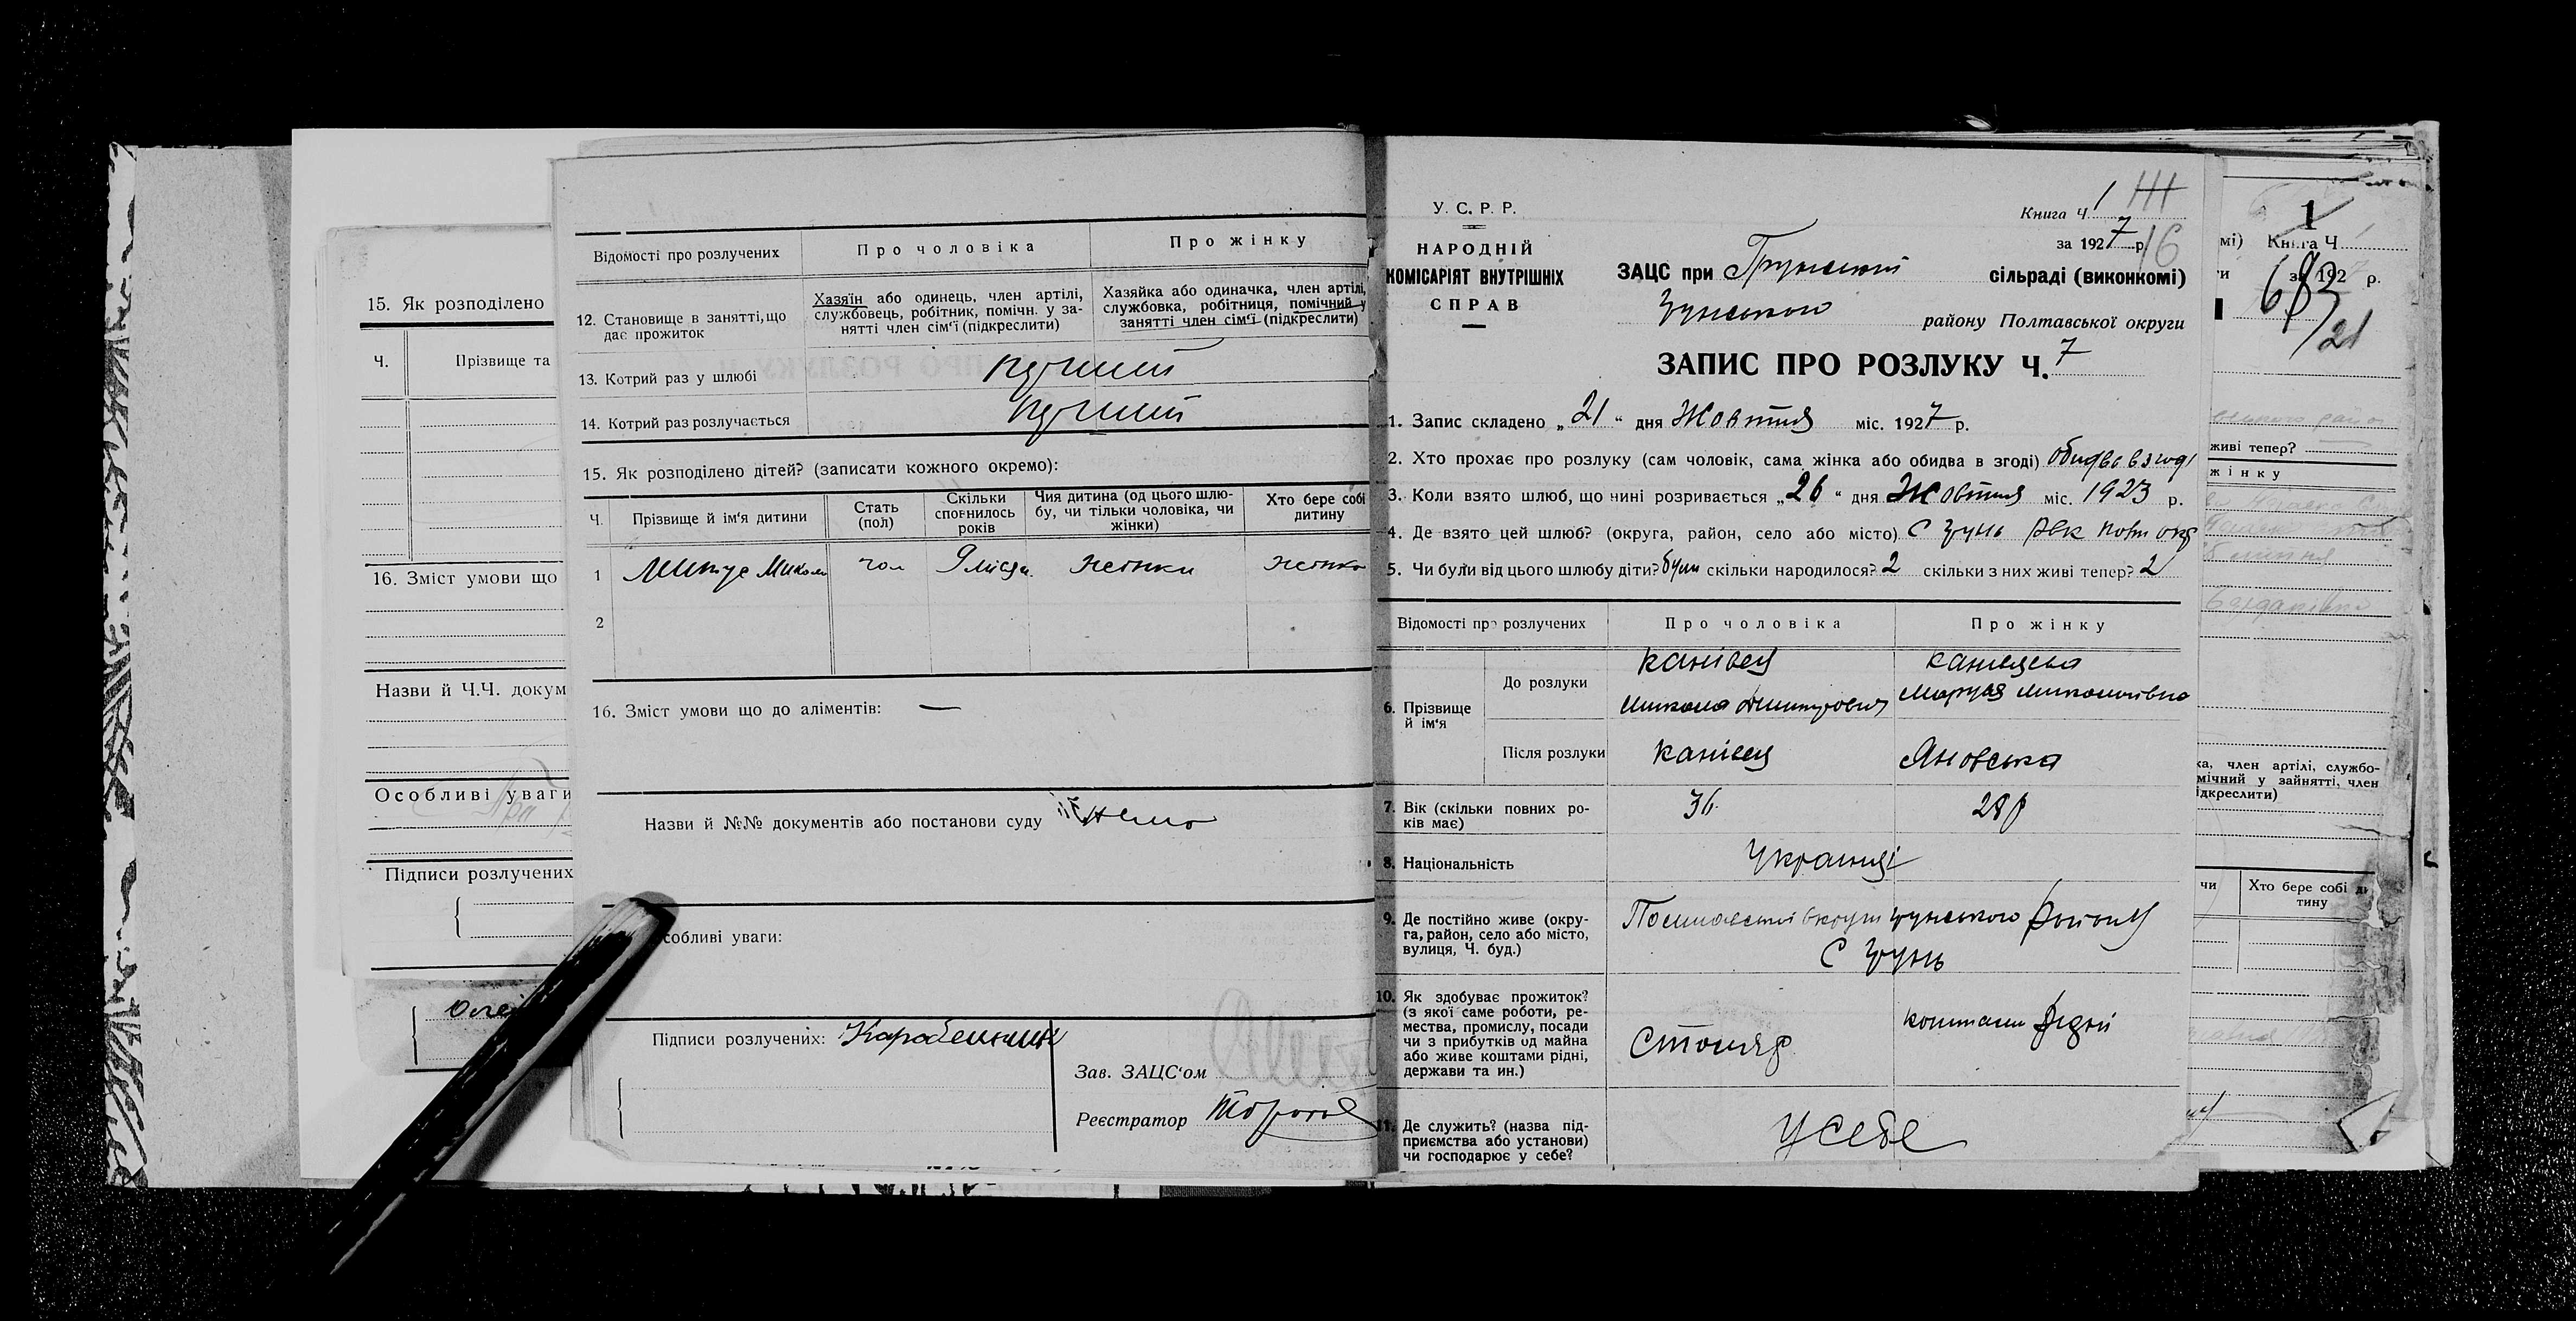 15. Як розподілено
Ч. Прізвище та
16. Зміст умови що
Назви й Ч.Ч. докум
Особливі уваги
Підписи розлучених
Відомості про розлучених Про чоловіка Про жінку
12. Становище в занятті, що дає прожиток
Хазяїн або одинець, член артілі,
службовець, робітник, помічн. у за-
нятті член сім'ї (підкреслити)
Хазяйка або одиначка, член артілі,
службовка, робітниця, помічний у
занятті член сім'ї (підкреслити)
13. Котрий раз у шлюбі
14. Котрий раз розлучається
15. Як розподілено дітей? (записати кожного окремо):
Ч. Прізвище й ім'я дитини
Стать
(пол)
Скільки
сповнилось
років
Чия дитина (од цього шлю-
бу, чи тільки чоловіка, чи
жінки)
Хто бере собі
дитину
1 чол 9 місяц. жінки жінка
2
16. Зміст умови що до аліментів: —
Назви й №№ документів або постанови суду нема
собливі уваги:
Підписи розлучених:
Зав. ЗАЦС'ом
Реєстратор
У. С. Р. Р.
НАРОДНІЙ
КОМІСАРІЯТ ВНУТРІШНІХ
СПРАВ
Книга Ч. 1
за 1927 р.
16
ЗАЦС при Грунській сільраді (виконкомі)
Грунського району Полтавської округи
ЗАПИС ПРО РОЗЛУКУ Ч. 7
1. Запис складено „21“ дня Жовтня міс. 1927 р.
2. Хто прохає про розлуку (сам чоловік, сама жінка або обидва в згоді) обидва в згоді
3. Коли взято шлюб, що нині розривається „26“ дня Жовтня міс. 1923 р.
4. Де взято цей шлюб? (округа, район, село або місто) С Грунь
5. Чи були від цього шлюбу діти? були скільки народилося? 2 скільки з них живі тепер? 2
Відомості про розлучених Про чоловіка Про жінку
6. Прізвище
й ім'я
До розлуки
Канівец
Микола Дмитрович
Маруся Миколаївна
Після розлуки Канівец Яновська
7. Вік (скільки повних ро-
ків має)
28 р
8. Національність Українці
9. Де постійно живе (окру-
га, район, село або місто,
вулиця, Ч. буд.)
Полтавської округи Грунського Району
С Грунь
10. Як здобуває прожиток?
(з якої саме роботи, ре-
мества, промислу, посади
чи з прибутків од майна
або живе коштами рідні,
держави та ин.)
Столяр
коштами Рідні
11. Де служить? (назва під-
приємства або установи)
чи господарює у себе?
У себе
1
мі) Книга Ч
за 192 р.
683
21
живі тепер?
жінку
ка, член артілі, службо-
мічний у зайнятті, член
ідкреслити)
чи Хто бере собі ди
тину